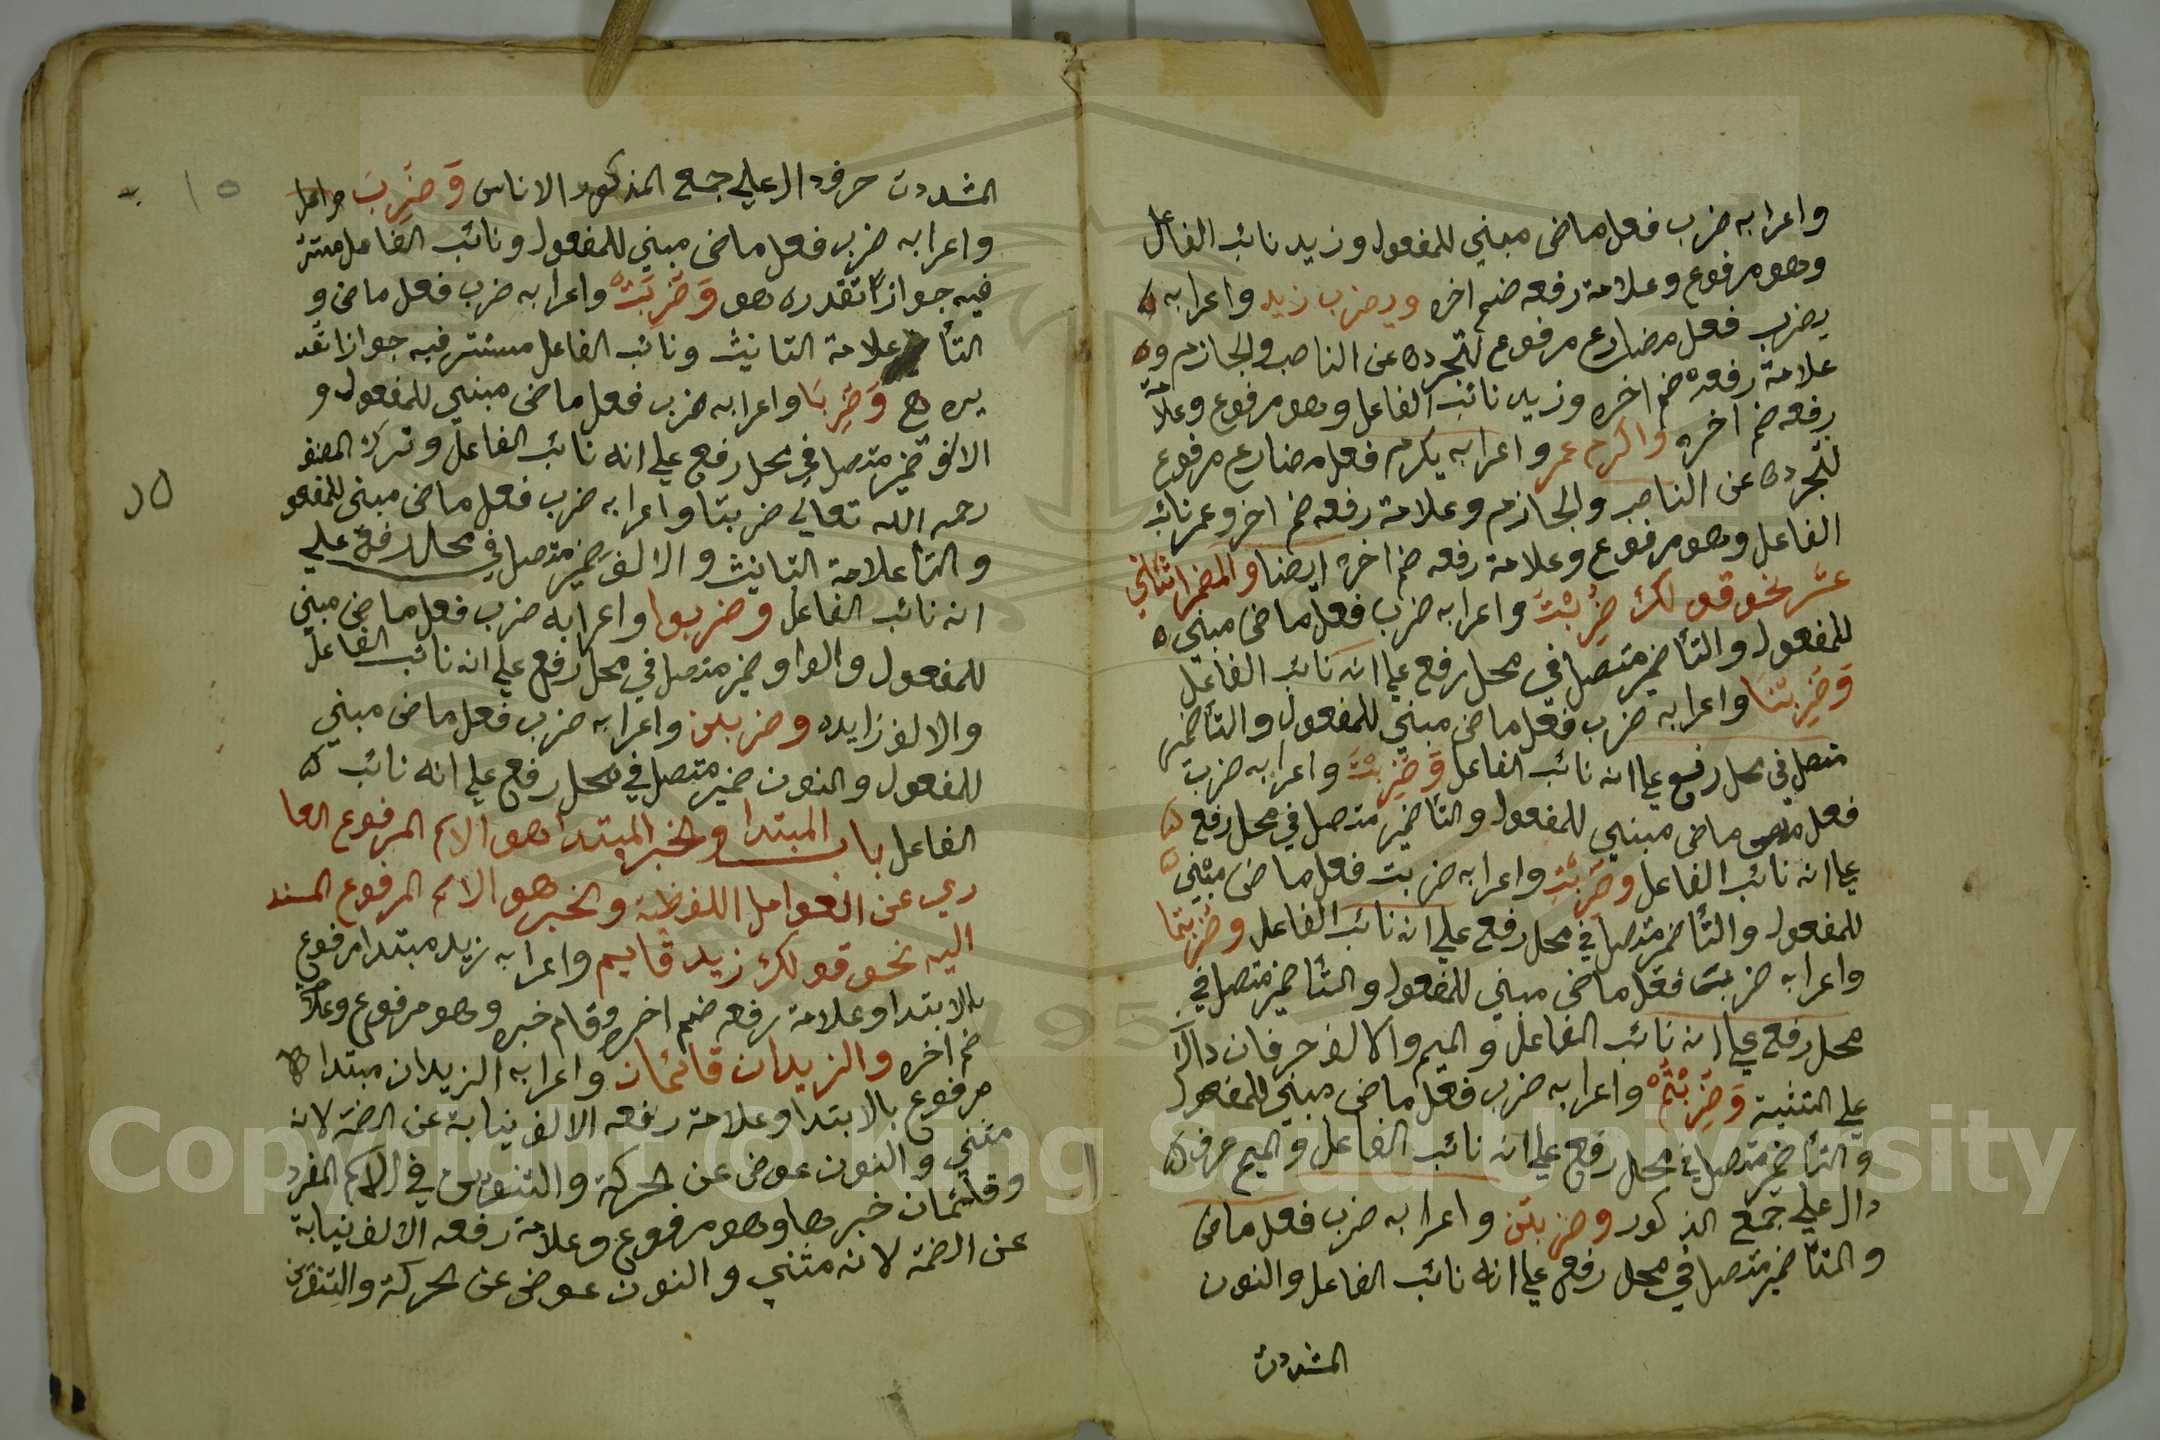 واعرابه ضرب فعل ماضى مبني للمفعول وزيد نائب الفاعل
وهو مرفوع وعلامة رفعه ضم اخره ويضرب زيد واعرابه
يضرب فعل مضارع مرفوع لتجرده عن الناصب والجازم و
علامة رفعه ضم اخره وزيد نائب الفاعل وهو مرفوع وعلامة
رفعه ضم اخره واكرم عمر واعرابه يكرم فعل مضارع مرفوع
لتجرده عن الناصب والجازم وعلامة رفعه ضم اخر وعمر نائب
الفاعل وهو مرفوع وعلامة رفعه ضم اخره ايضا والمضمر اثنا
عشر نحو قولك ضُرِبْتُ واعرابه ضرب فعل ماضى مبني
للمفعول والتأ ضمير متصل في محل رفع على انه نائب الفاعل
وَضُرِبْنَا واعرابه ضرب فعل ماضى مبني للمفعول والتأ ضمير
متصل في محل رفع على انه نائب الفاعل وَضُرِبْتَ واعرابه ضربت
فعل ماضى مبني للمفعول والتأ ضمير متصل في محل رفع
على انه نائب الفاعل وضُرِبْتِ واعرابه ضربت فعل ماضى مبني
للمفعول والتأ ضمير متصل في محل رفع على انه نائب الفاعل وضربتما
واعرابه ضربت فعل ماضى مبني للمفعول والتأ ضمير متصل في
محل رفع على انه نائب الفاعل والميم والالف حرفان دالا
على التثنية وَضُرِبْتُمْ واعرابه ضرب فعل ماضى مبني للمفعول
والتأ ضمير متصل في محل رفع على انه نائب الفاعل والميم حرف
دال على جمع الذكور وضربتن واعرابه ضرب فعل ماضى
والتأ ضمير متصل في محل رفع على انه نائب الفاعل والنون
المشددت
المشددت حرف دال على جمع المذكور الاناس وَضُرِبَ
واعرابه ضرب فعل ماضى مبني للمفعول ونائب الفاعل مستتر
فيه جوازا تقدره هو وَضُرِبَتْ واعرابه ضرب فعل ماضى و
التأ علامة التانيث ونائب الفاعل مستتر فيه جوازا تقد
يره هي وَضُرِبَا واعرابه ضرب فعل ماضى مبني للمفعول و
الالف ضمير متصل في محل رفع على انه نائب الفاعل وترك المصنف
رحمه الله تعالى ضربتا واعرابه ضرب فعل ماضى مبني للمفعو
والتأ علامة التانيث والالف ضمير متصل في محل رفع على
انه نائب الفاعل وضربوا واعرابه ضرب فعل ماضى مبني
للمفعول والواو ضمير متصل في محل رفع على انه نائب الفاعل
والالف زايده وضربن واعرابه ضرب فعل ماضى مبني
للمفعول والنون ضمير متصل في محل رفع على انه نائب
الفاعل باب المبتدا والخبر المبتدا هو الاسم المرفوع العا
ري عن العوامل اللفظية والخبر هو الاسم المرفوع المسند
اليه نحو قولك زيد قايم واعرابه زيد مبتدا مرفوع
بالابتدا وعلامة رفعه ضم اخره وقام خبره وهو مرفوع وعلامة
ضم اخره والزيدان قائمان واعرابه الزيدان مبتدا
مرفوع بالابتدا وعلامة رفعه الالف نيابة عن الضمة لانه
مثني والنون عوض عن الحركة والتنوين في الاسم المفرد
وقائمان خبرها وهو مرفوع وعلامة رفعه الالف نيابة
عن الضمة لانه مثني والنون عوض عن الحركة والتنوين
١٥
Copyright © King Saud University
1957